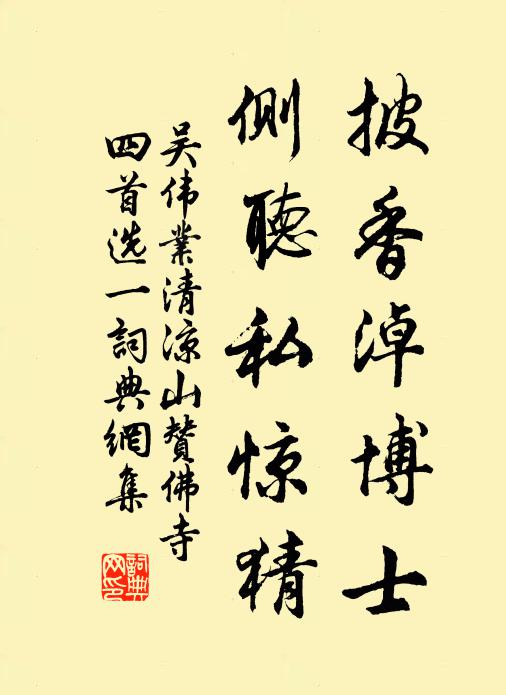 披香淖博士
側聴私惊猜
吴伟業清凉山賛佛寺
四首选一詞典網集
詞典
网印